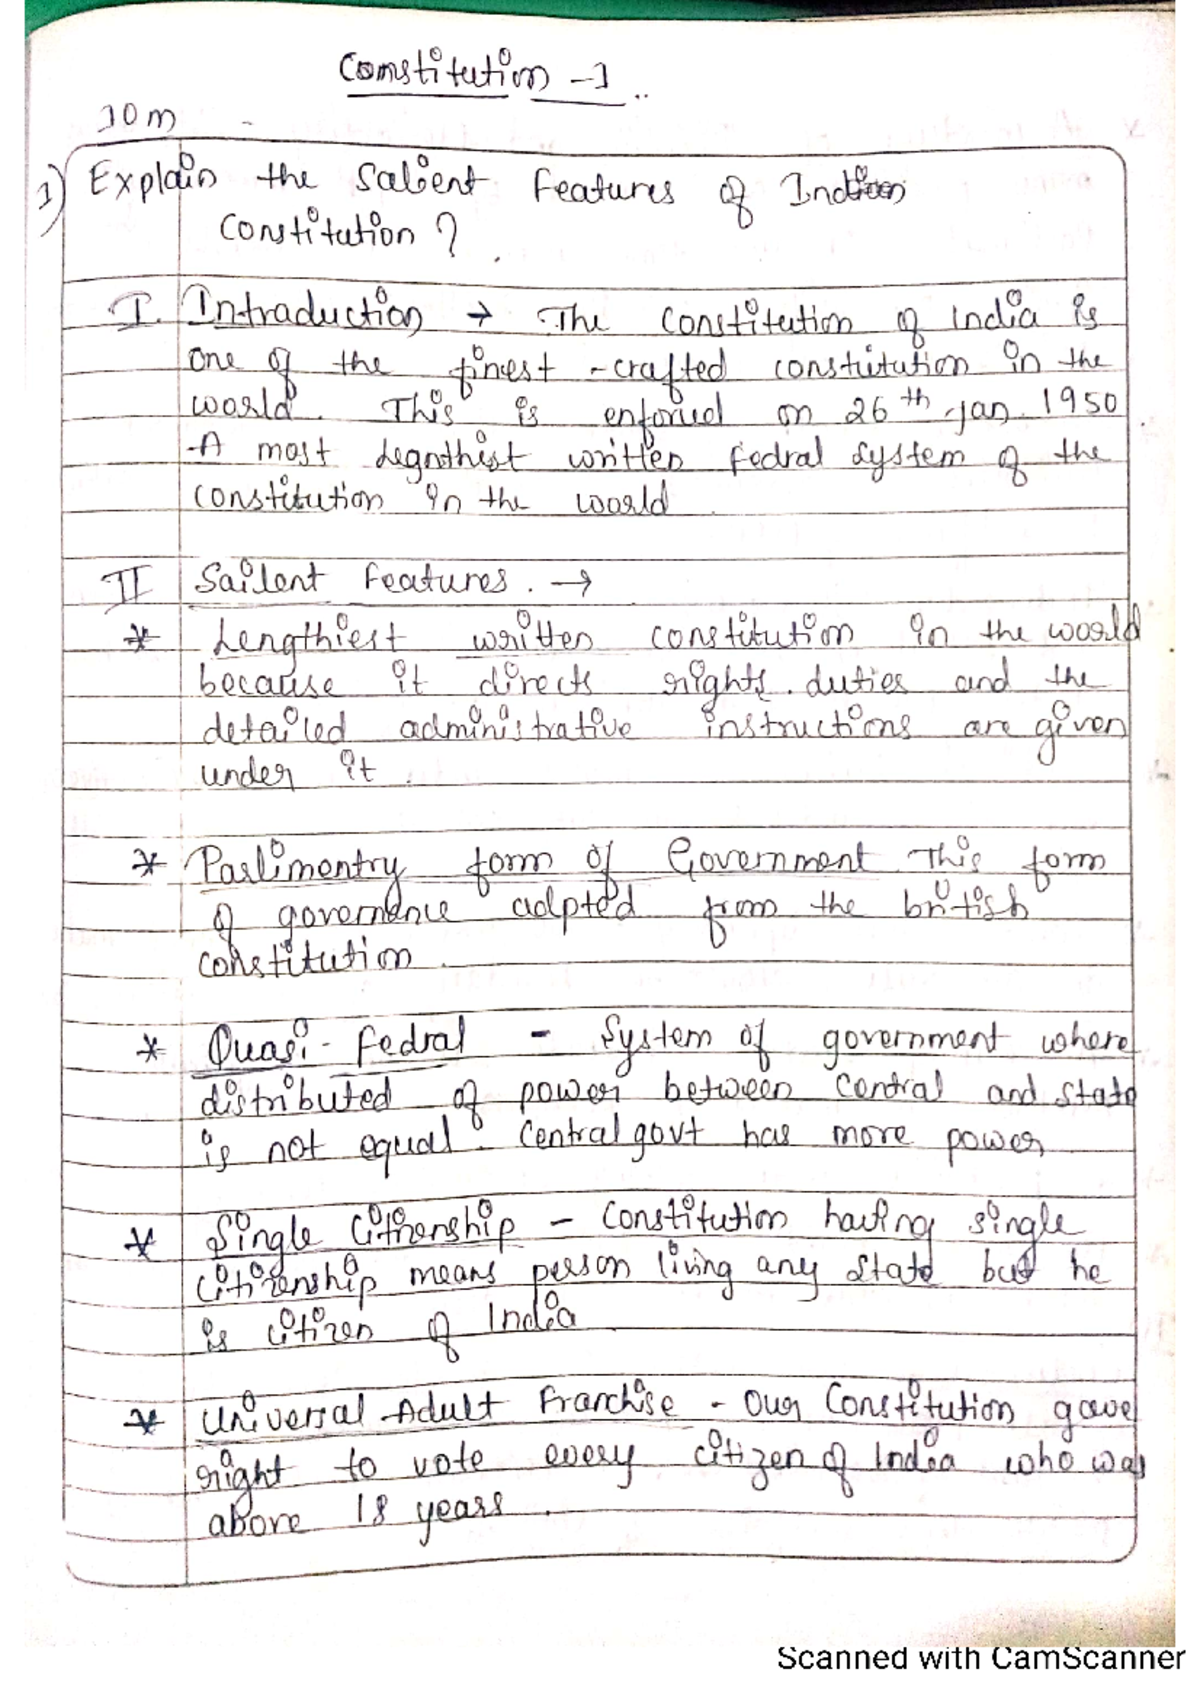 Constitution - 1
10 m
1) Explain the Salient Features of Indian
Constitution ?
I. Intraduction → The Constitution of India is
one of the finest - crafted constitution in the
world. This is enforied on 26th Jan. 1950
- A most legnthist written fedral system of the
constitution in the world.
II Sailent Features. →
* Lengthiest written constitution in the world
because it directs rights. duties and the
detailed administrative instructions are given
under it.
* Parlimentry form of Government This form
of governance adpted from the british
constitution.
* Quasi - Fedral - System of government where
distributed of power between Central and State
is not equal. Central govt has more power
* Single Citizenship - Constitution having single
Citizenship means person living any State but he
is citizen of India
* Universal Adult Franchise - Our Constitution gave
right to vote every citizen of India who was
above 18 years.
Scanned with CamScanner